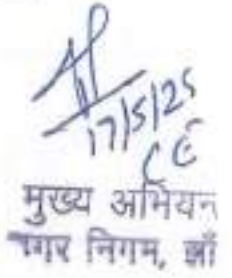 17/5/25
CE
मुख्य अभियन
नगर निगम, झाँ